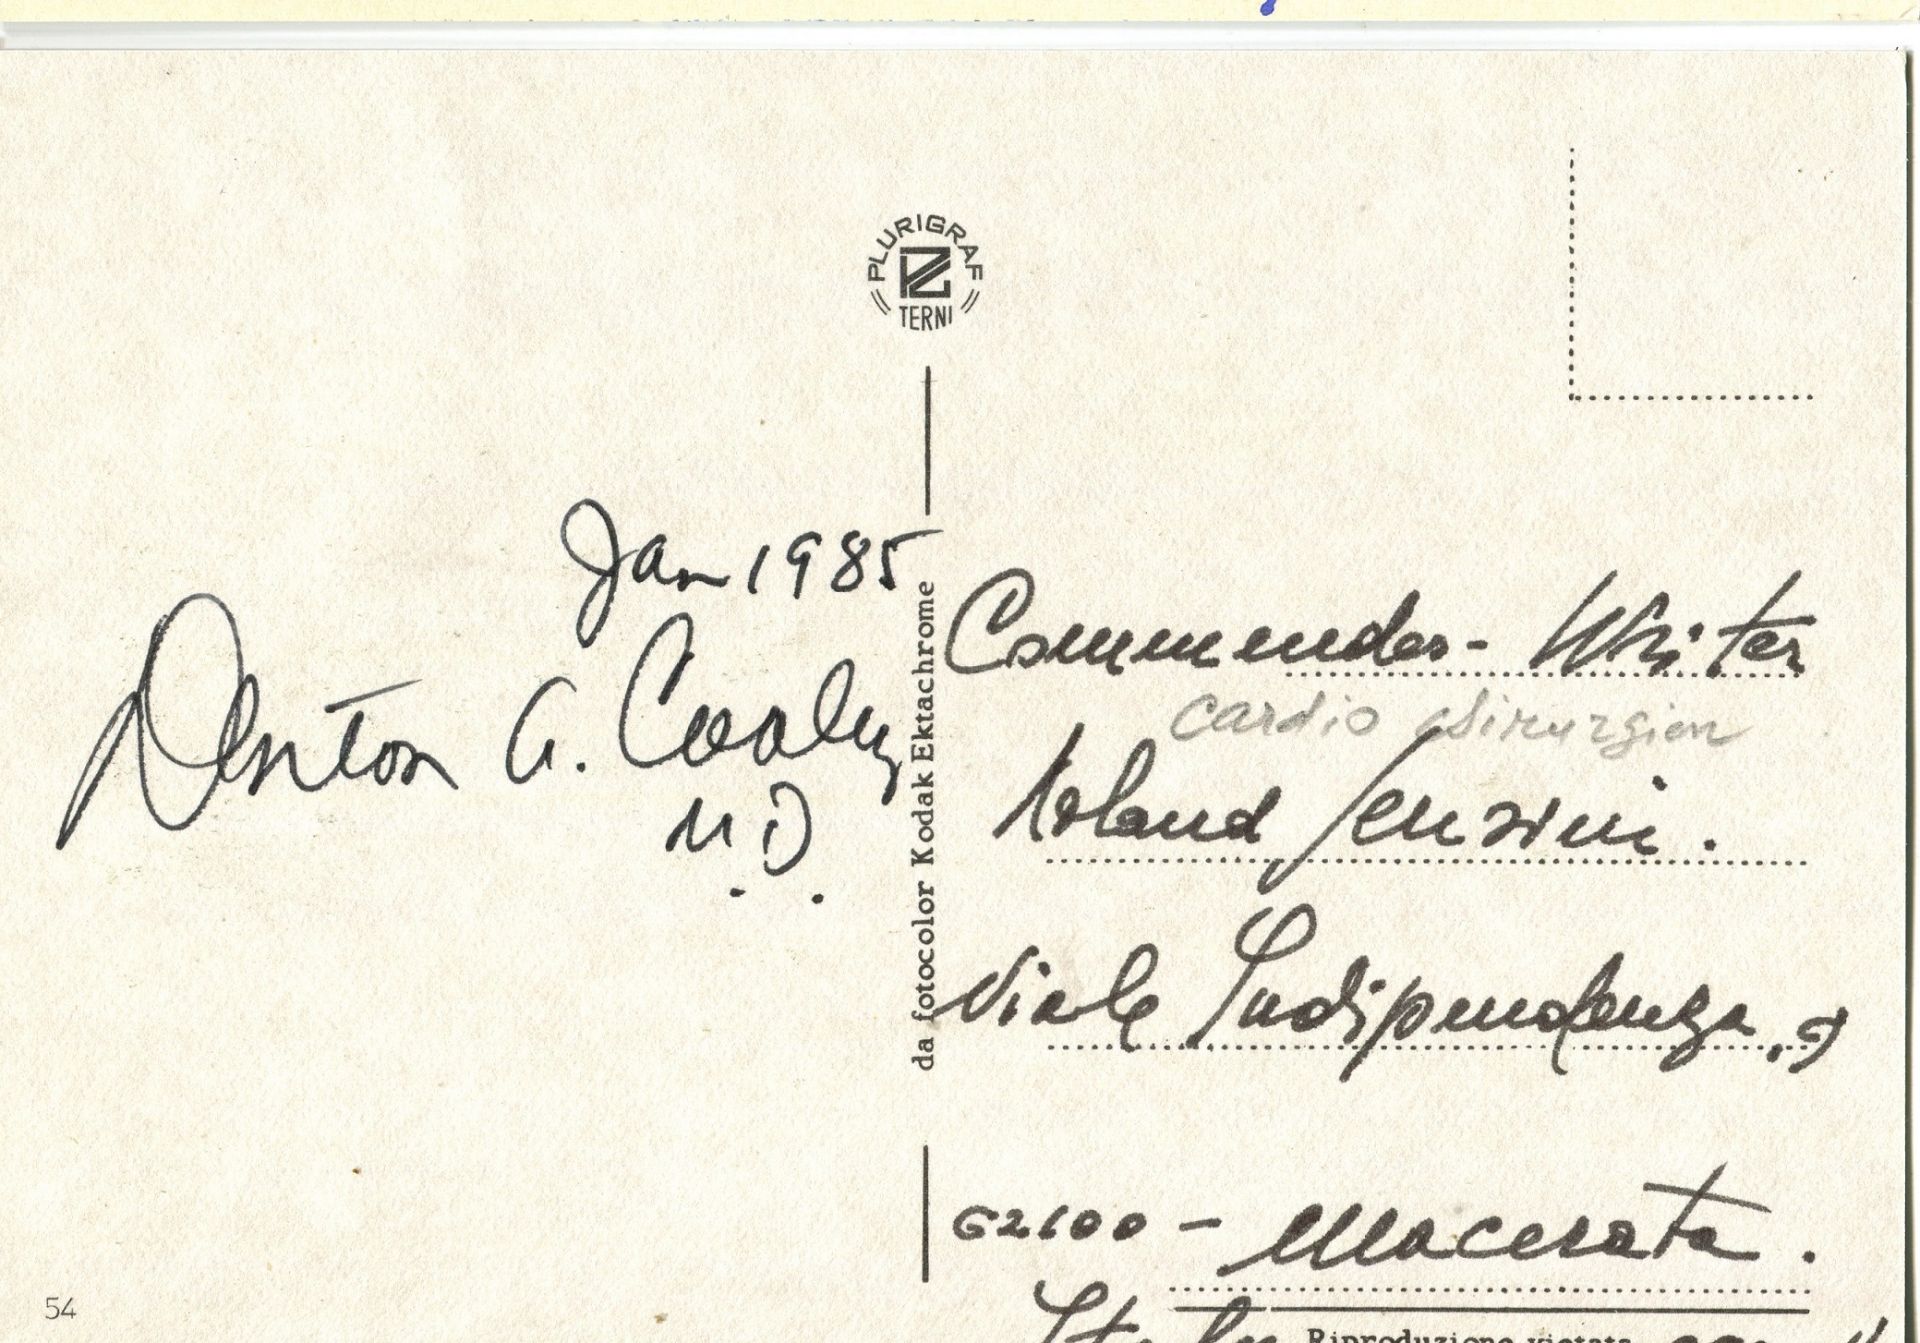 PLURIGRAF
TERNI
Jan 1985
Denton A. Cooley
M.D.
da fotocolor Kodak Ektachrome
Commender - Writer
cardio chirurgien
Roland Jenzini.
Viale Indipendenza, 9
62100 - Macerata.
Italy
Riproduzione vietata
54